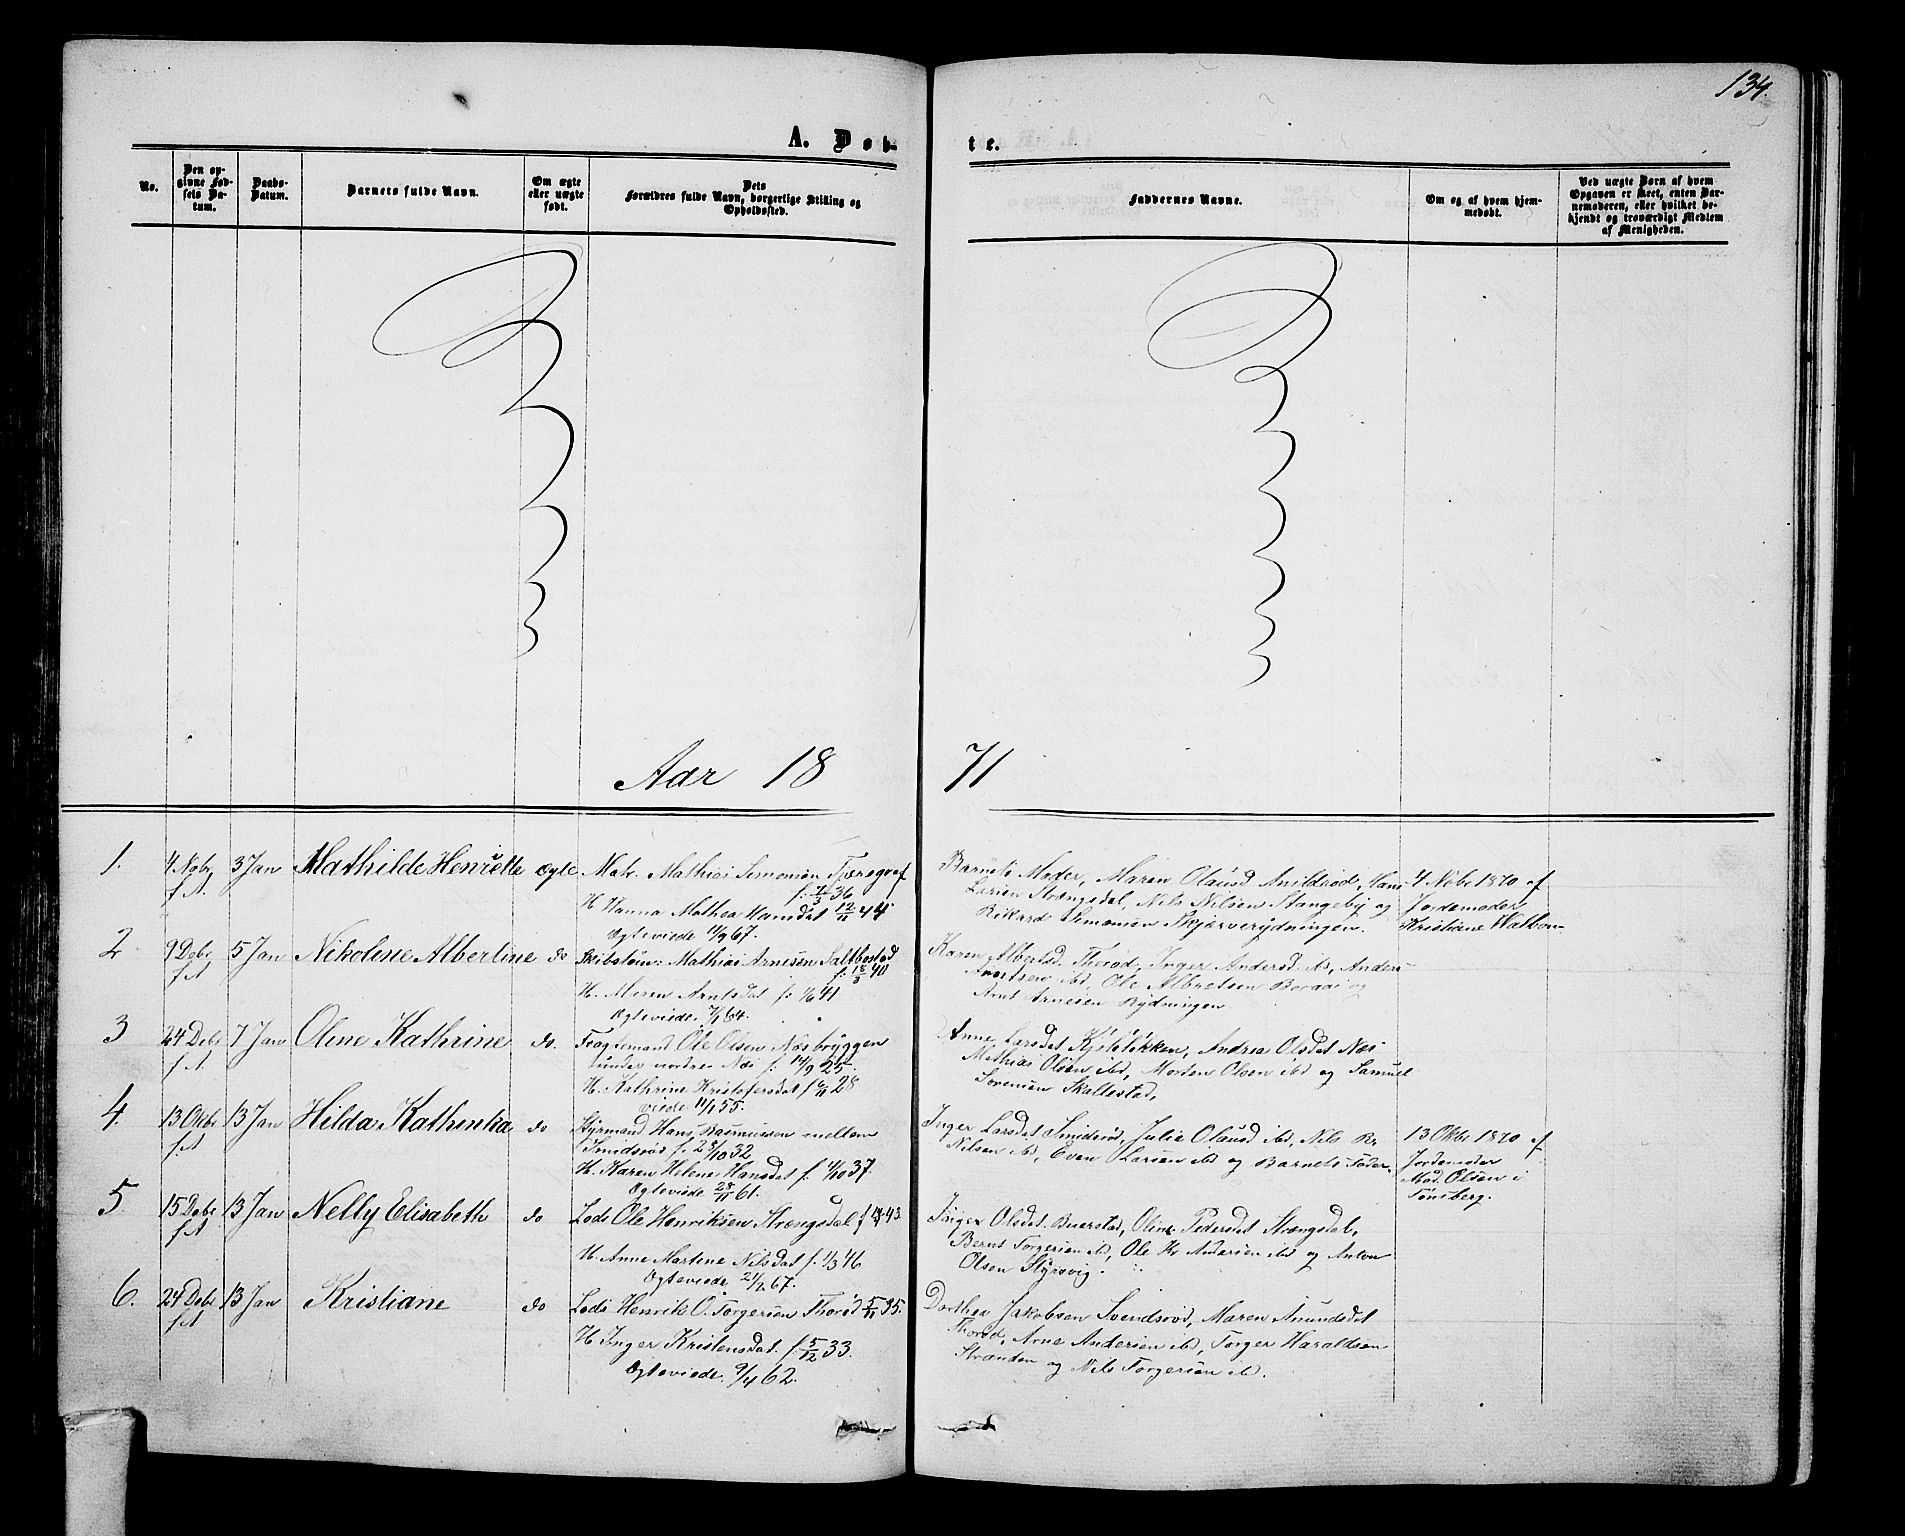 134.
A. Døb-
te.
No.
Den op-
givne Fød-
sels Da-
tum.
Daabs-
Datum.
Barnets fulde Navn.
Om ægte
eller uægte
født.
Dets
Forældres fulde Navn, borgerlige Stilling og
Opholdssted.
Faddernes Navne.
Om og af hvem hjem-
medøbt.
Ved uægte Børn af hvem
Opgaven er skeet, enten Bar-
nemoderen, eller hvilket be-
kjendt og troværdigt Medlem
af Menigheden.
Aar 18
71
1.
4 Nobr
f. A.
3 Jan
Mathilde Henriette
Ægte
Matr. Mathias Simonsen Fjæregraf
f. 7/3 36
H. Hanna Mathea Hansdat 12/11 44
Ægteviede 67.
Barnets Moder, Maren Olausd Anildrød, Hans
Larsen Strængsdal, Nils Nilsen Stangeby og
Rikard Simonsen Skjærverydningen.
4 Nobr 1870 af
Jordemoder
Kristiane
2
9 Debr
f. A
5 Jan
Nikolene Albertine
do
Skibstøm: Mathias Arnesen Saltbostad
f. 18/5 40
H. Maren Arntsdat f. 41
Ægteviede 64.
Karen Albertsd. Thorød, Inger Andersd. ibd, Anders
Arntsen ibd, Ole Albretsen Borgaas og
Arnt Arnesen Rydningen
3
24 Debr
f. A
7 Jan
Oline Kathrine
do.
Fragtemand Ole Olsen Næsbryggen
under nordre Næs f. 14/9 25.
H. Kathrine Kristofersdat f 6/11 28
viede 11/1 55.
Anne Larsdat Kjøleløkken, Andrea Olsdat Næs
Mathias Olsen ibd, Morten Olsen ibd og Samuel
Sørensen Skallestad.
4.
13 Oktbr
f. A
13 Jan
Hilda Kathinka
do
Styrmand Hans Rasmussen mellem
Smidsrød f. 28/10 32
H. Karen Helene Hansdat f. 4/10 37.
Ægteviede 28/11 61.
Inger Larsdat Smidsrød, Julie Olausd ibd, Nils Kr
Nilsen ibd, Even Larsen ibd og Barnets Fader.
13 Oktbr 1870 af
Jordemoder
Mad. Olsen i
Tønsberg.
5
15 Debr
f A
13 Jan
Nelly Elisabeth
do
Lods Ole Henriksen Strængsdal f 43
H. Anne Martene Nilsdat f. 1/3 46
Ægteviede 67.
Inger Olsdat Buerstad, Oline Pedersdat Strængsdal,
Bernt Torgersen ibd, Ole Kr Andersen ibd og Anton
Olsen Styrsvig.
6.
24 Debr
f. A
13 Jan
Kristiane
do
Lods Henrik O. Torgersen Thorød 5/11 35.
H. Inger Kristensdat. f. 5/12 33.
Ægteviede 9/4 62.
Dorthea Jakobsen Svendsrød, Maren Amundsdat
Thorød, Arne Andersen ibd, Torger Haraldsen
Stranden og Nils Torgersen ibd.